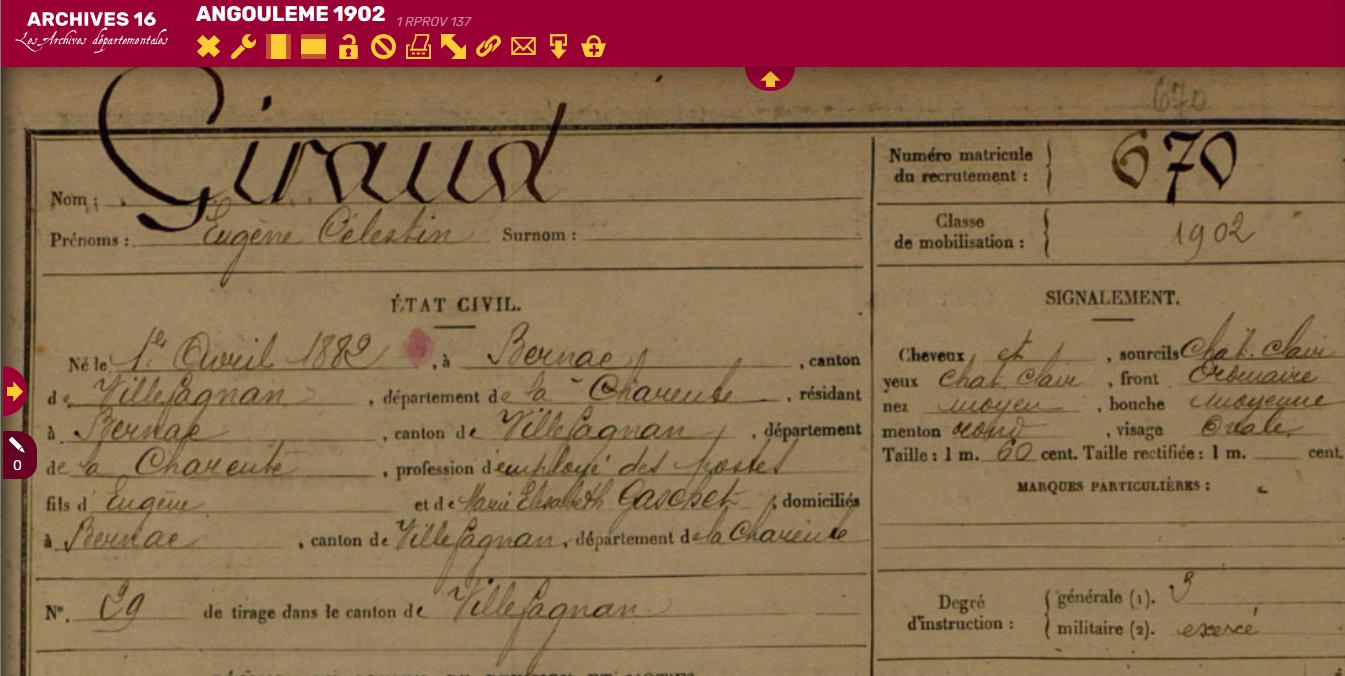 ARCHIVES 16
Les Archives départementales
ANGOULEME 1902 1 RPROV 137
0
670
Nom : Giraud
Prénoms : Eugène Célestin Surnom :
ÉTAT CIVIL.
Né le 1er Avril 1882, à Bernac, canton
de Villefagnan, département de la Charente, résidant
à Bernac, canton de Villefagnan, département
de la Charente, profession d'employé des postes
fils d'Eugène et de Marie Elisabeth Gaschet, domiciliés
à Bernac, canton de Villefagnan, département de la Charente
N° 29 de tirage dans le canton de Villefagnan
Numéro matricule du recrutement : 670
Classe de mobilisation : 1902
SIGNALEMENT.
Cheveux et, sourcils Chat. clair
yeux chat. clair, front Ordinaire
nez moyen, bouche moyenne
menton rond, visage Ovale
Taille : 1 m. 60 cent. Taille rectifiée : 1 m. cent.
MARQUES PARTICULIÈRES :
Degré d'instruction : générale (1). 3
militaire (2). exercé